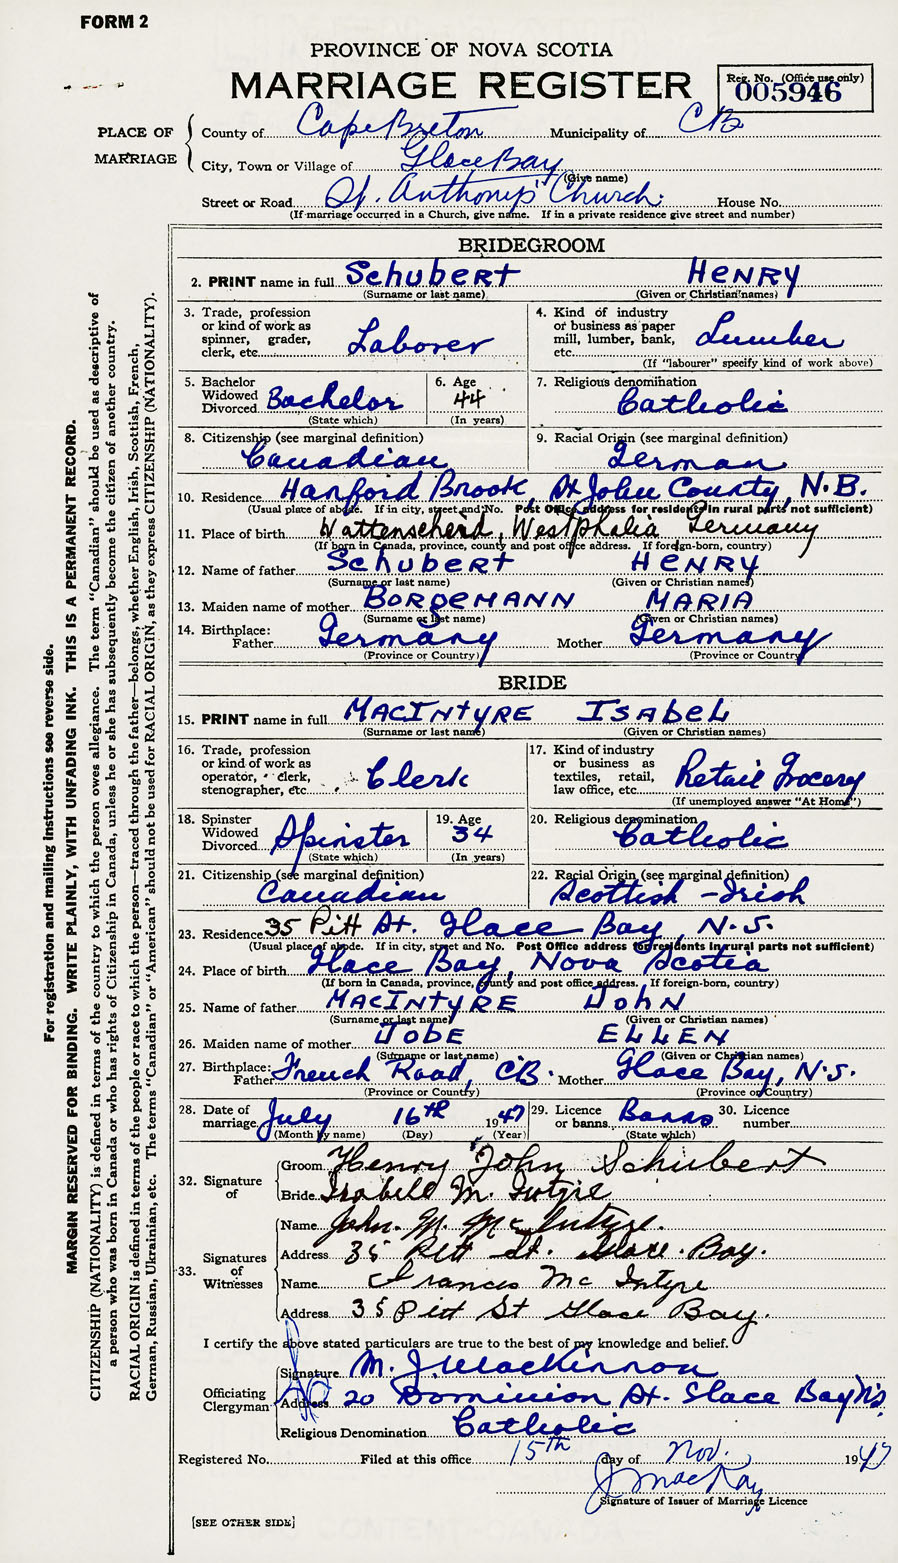 FORM 2
PROVINCE OF NOVA SCOTIA
MARRIAGE REGISTER
Reg. No. (Office use only)
005946
PLACE OF MARRIAGE
County of Cape Breton Municipality of CB
City, Town or Village of Glace Bay
(Give name)
Street or Road St. Anthony's Church House No.
(If marriage occurred in a Church, give name. If in a private residence give street and number)
BRIDEGROOM
2. PRINT name in full Schubert HENRY
(Surname or last name) (Given or Christian names)
3. Trade, profession or kind of work as spinner, grader, clerk, etc. Laborer
4. Kind of industry or business as paper mill, lumber, bank, etc. Lumber
(If "labourer" specify kind of work above)
5. Bachelor Widowed Divorced Bachelor
(State which)
6. Age 44
(In years)
7. Religious denomination Catholic
8. Citizenship (see marginal definition) Canadian
9. Racial Origin (see marginal definition) German
10. Residence Hanford Brook, St John County, N.B.
(Usual place of abode. If in city, street and No. Post Office address for residents in rural parts not sufficient)
11. Place of birth Wattenscheid, Westphalia Germany
(If born in Canada, province, county and post office address. If foreign-born, country)
12. Name of father Schubert HENRY
(Surname or last name) (Given or Christian names)
13. Maiden name of mother BORGEMANN MARIA
(Surname or last name) (Given or Christian names)
14. Birthplace: Father Germany Mother Germany
(Province or Country) (Province or Country)
BRIDE
15. PRINT name in full MACINTYRE ISABEL
(Surname or last name) (Given or Christian names)
16. Trade, profession or kind of work as operator, clerk, stenographer, etc. Clerk
17. Kind of industry or business as textiles, retail, law office, etc. Retail Grocery
(If unemployed answer "At Home")
18. Spinster Widowed Divorced Spinster
(State which)
19. Age 34
(In years)
20. Religious denomination Catholic
21. Citizenship (see marginal definition) Canadian
22. Racial Origin (see marginal definition) Scottish - Irish
23. Residence 35 Pitt St. Glace Bay, N.S.
(Usual place of abode. If in city, street and No. Post Office address for residents in rural parts not sufficient)
24. Place of birth Glace Bay, Nova Scotia
(If born in Canada, province, county and post office address. If foreign-born, country)
25. Name of father MACINTYRE JOHN
(Surname or last name) (Given or Christian names)
26. Maiden name of mother JOBE ELLEN
(Surname or last name) (Given or Christian names)
27. Birthplace: Father French Road, CB. Mother Glace Bay, N.S.
(Province or Country) (Province or Country)
28. Date of marriage July 16th 1947
(Month by name) (Day) (Year)
29. Licence or banns Banns
(State which)
30. Licence number
32. Signature of
Groom Henry John Schubert
Bride Isabell M. Intyre
33. Signatures of Witnesses
Name John. M. McIntyre.
Address 35 Pitt St. Glace. Bay.
Name Frances Mc Intyre
Address 35 Pitt St Glace Bay.
I certify the above stated particulars are true to the best of my knowledge and belief.
Officiating Clergyman
Signature M. J. MacKinnon
Address 20 Dominion St. Glace Bay N.S.
Religious Denomination Catholic
Registered No. Filed at this office 15th day of Nov. 1947
J MacKay
Signature of Issuer of Marriage Licence
[SEE OTHER SIDE]
For registration and mailing instructions see reverse side.
MARGIN RESERVED FOR BINDING. WRITE PLAINLY, WITH UNFADING INK. THIS IS A PERMANENT RECORD.
CITIZENSHIP (NATIONALITY) is defined in terms of the country to which the person owes allegiance. The term "Canadian" should be used as descriptive of
a person who was born in Canada or who has rights of Citizenship in Canada, unless he or she has subsequently become the citizen of another country.
RACIAL ORIGIN is defined in terms of the people or race to which the person—traced through the father—belongs, whether English, Irish, Scottish, French,
German, Russian, Ukrainian, etc. The terms "Canadian" or "American" should not be used for RACIAL ORIGIN, as they express CITIZENSHIP (NATIONALITY).